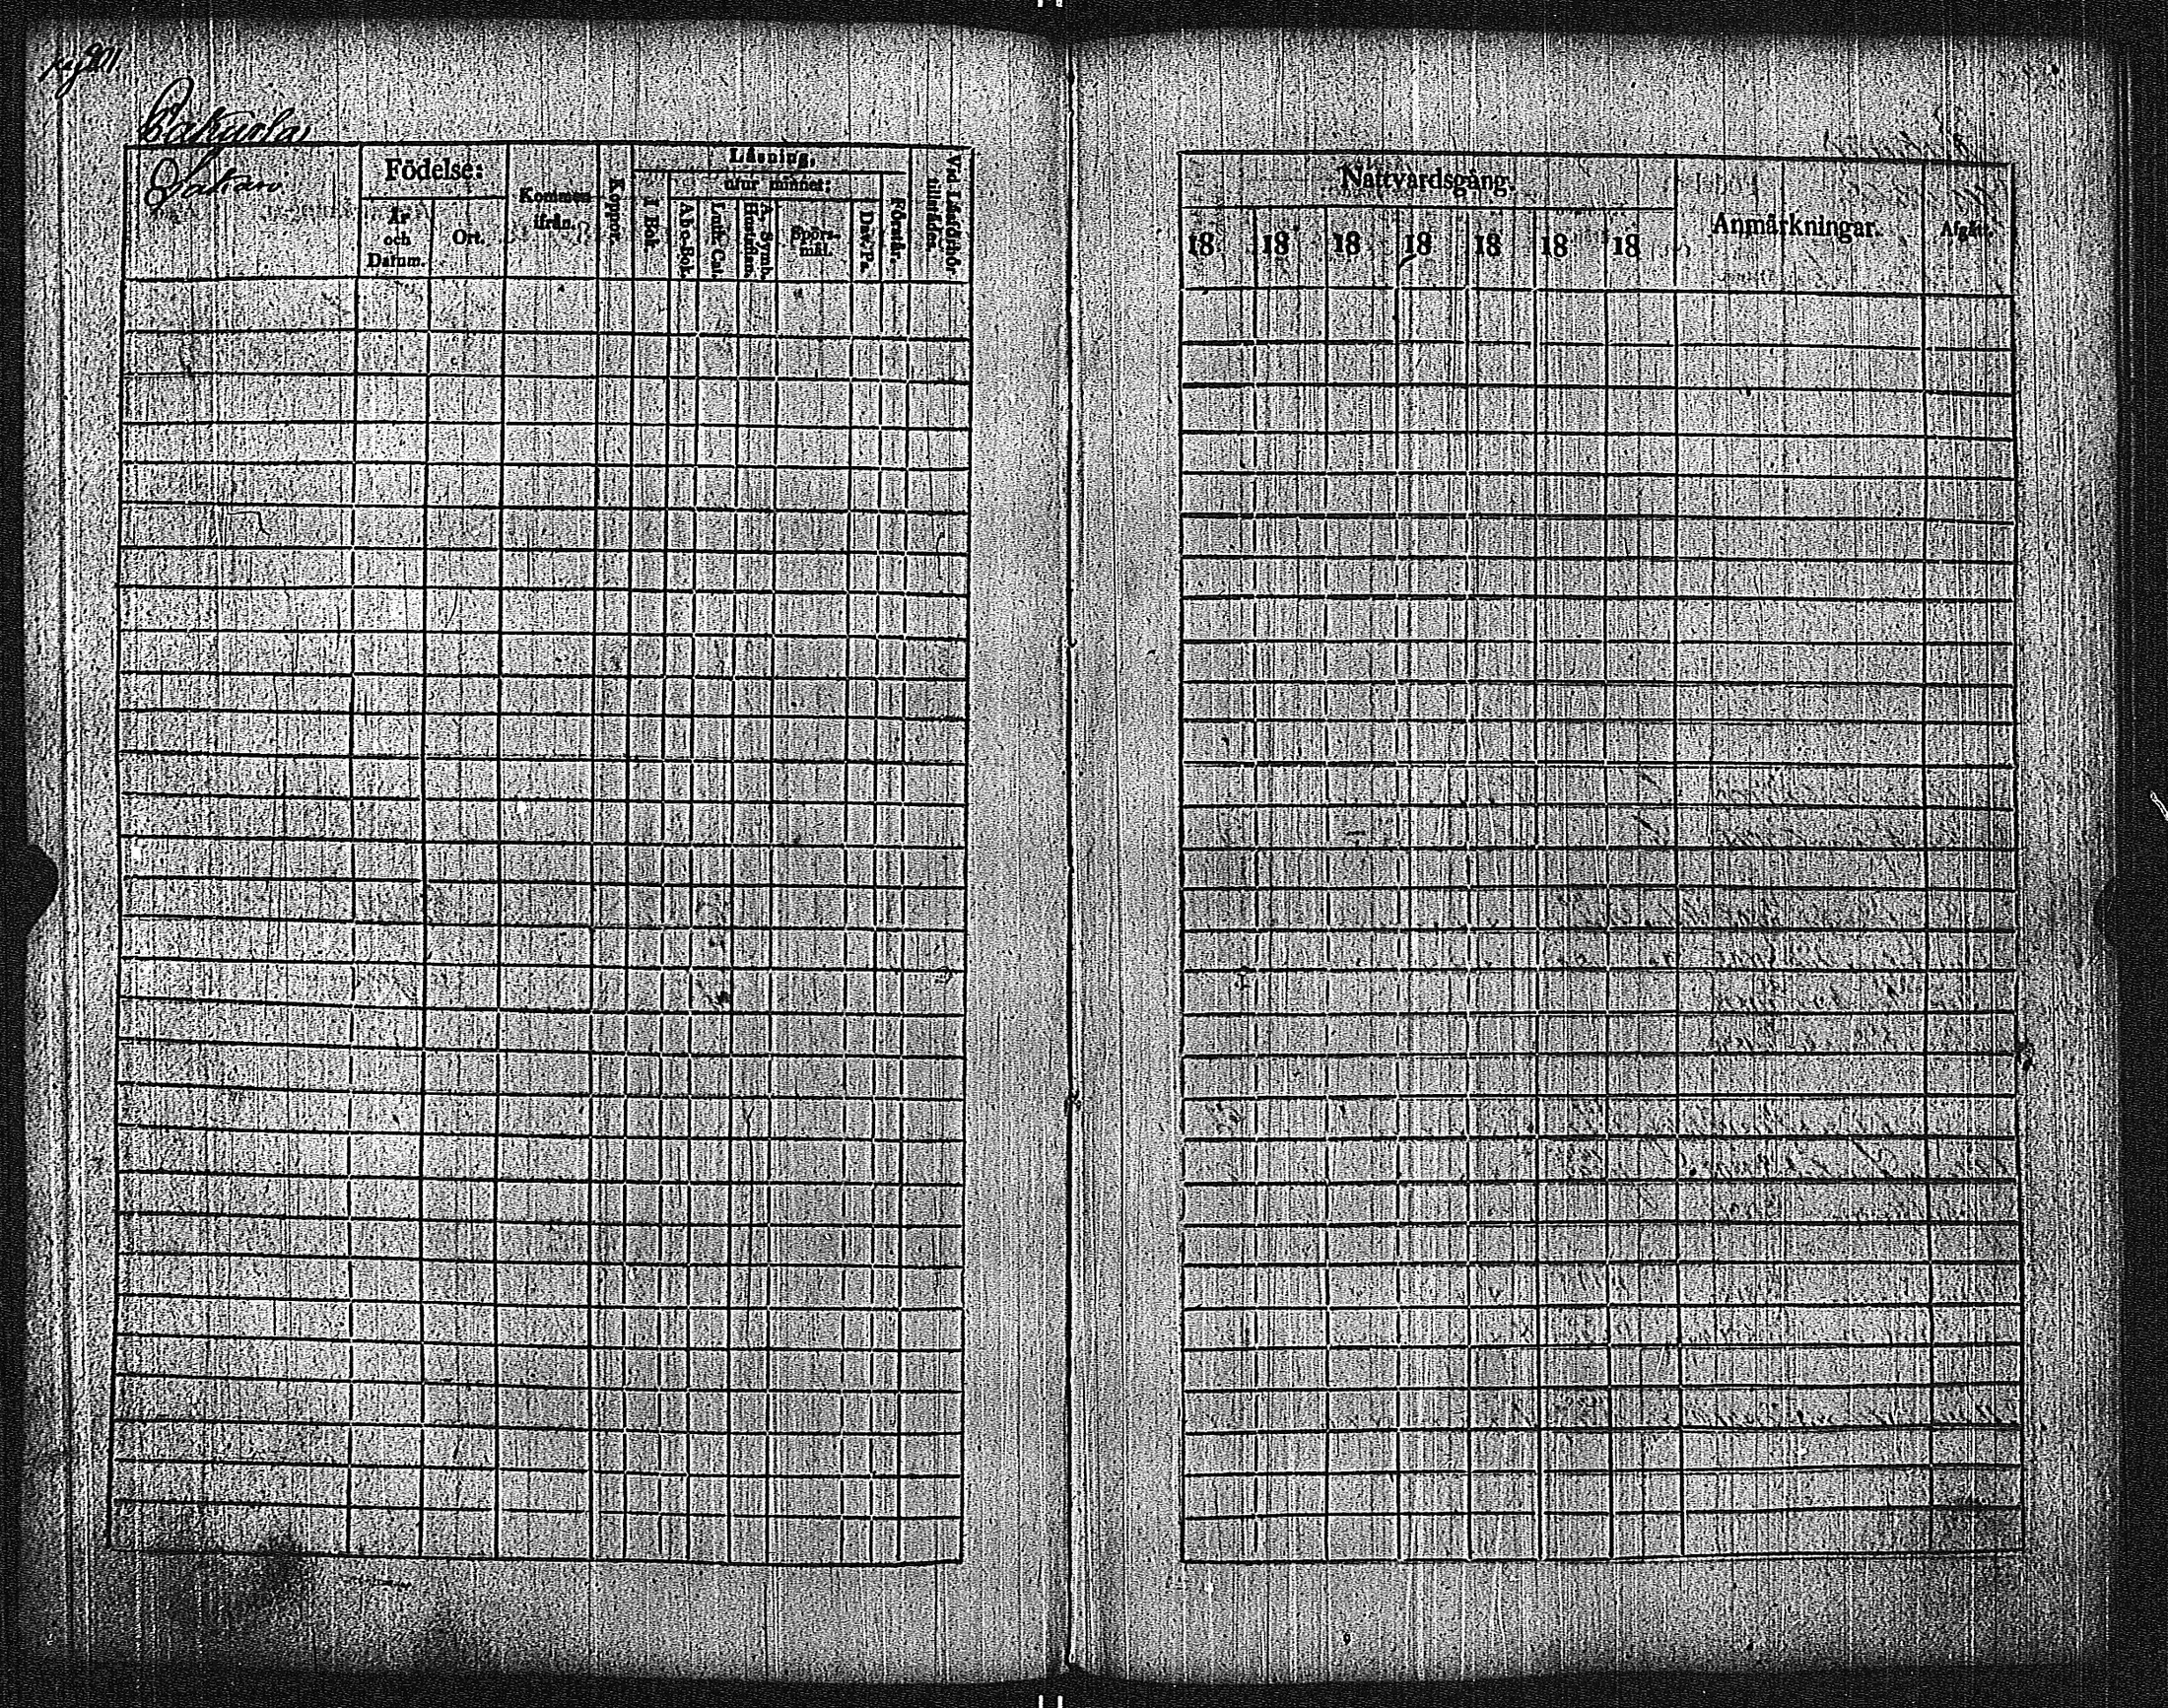 Födelse:
År
och
Datum.
Ort.
Kommen
ifrån.
Koppor.
Läsning,
utur minnet:
I Bok.
Abc-Bok.
Luth. Cat.
A. Symb.
Hustaflan.
Spörs-
mål.
Dav. Ps.
Förstår.
Vid Läsförhör
tillstädes.
Nattvardsgång.
18 18 18 18 18 18 18
Anmärkningar.
Afgått.